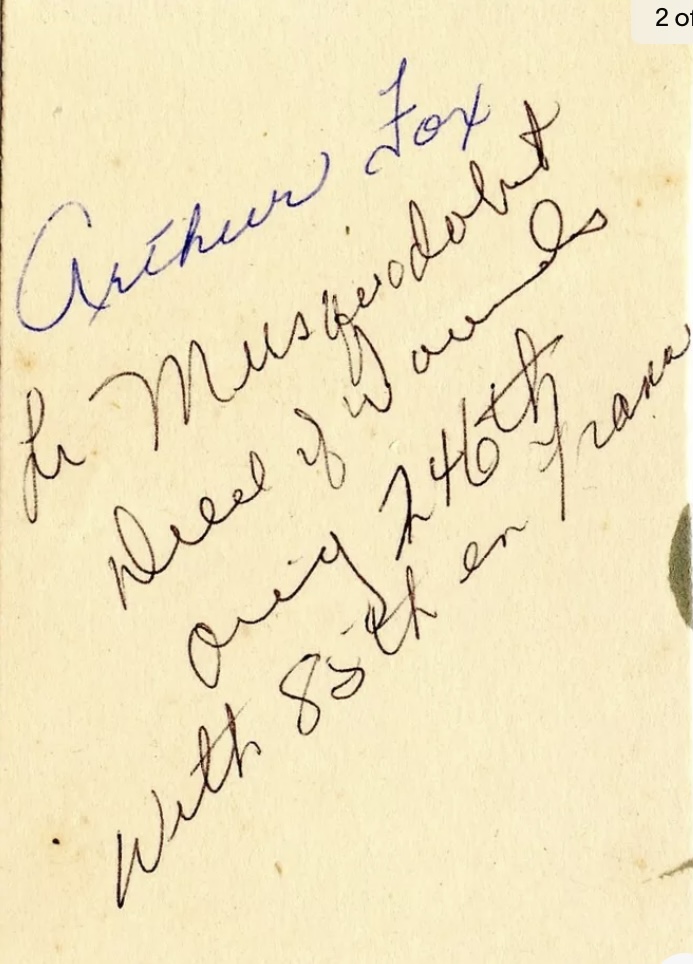 2 of
Arthur Fox
Lr Musquodobit
Died of Wounds
orig 246th
With 85th en Franc